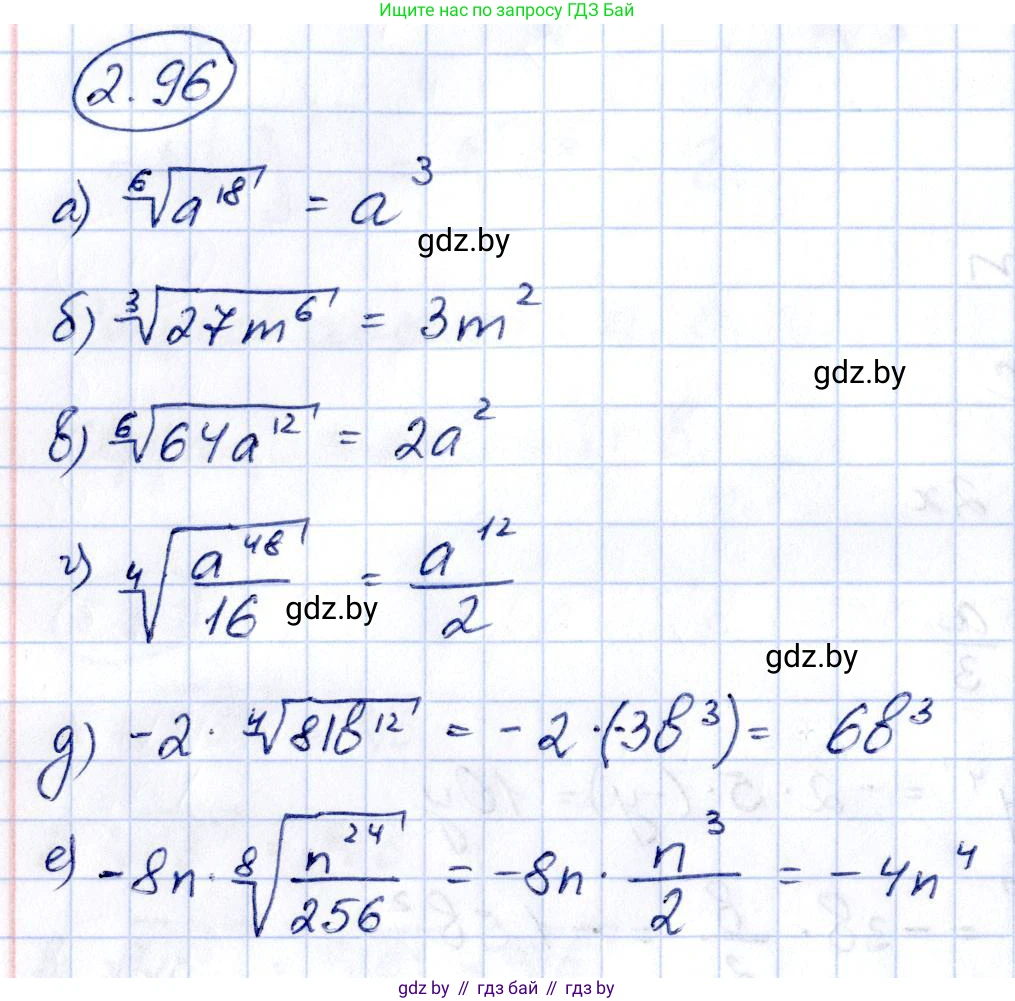 Ищите нас по запросу ГДЗ Бай
2.96
а) ⁶√(a¹⁸) = a³
gdz.by
б) ³√(27m⁶) = 3m²
gdz.by
в) ⁶√(64a¹²) = 2a²
г) ⁴√(a⁴⁸/16) = a¹²/2
gdz.by
gdz.by
д) -2 · ⁴√(81b¹²) = -2·(-3b³) = 6b³
е) -8n · ⁸√(n²⁴/256) = -8n · n³/2 = -4n⁴
gdz.by // гдз бай // gdz by